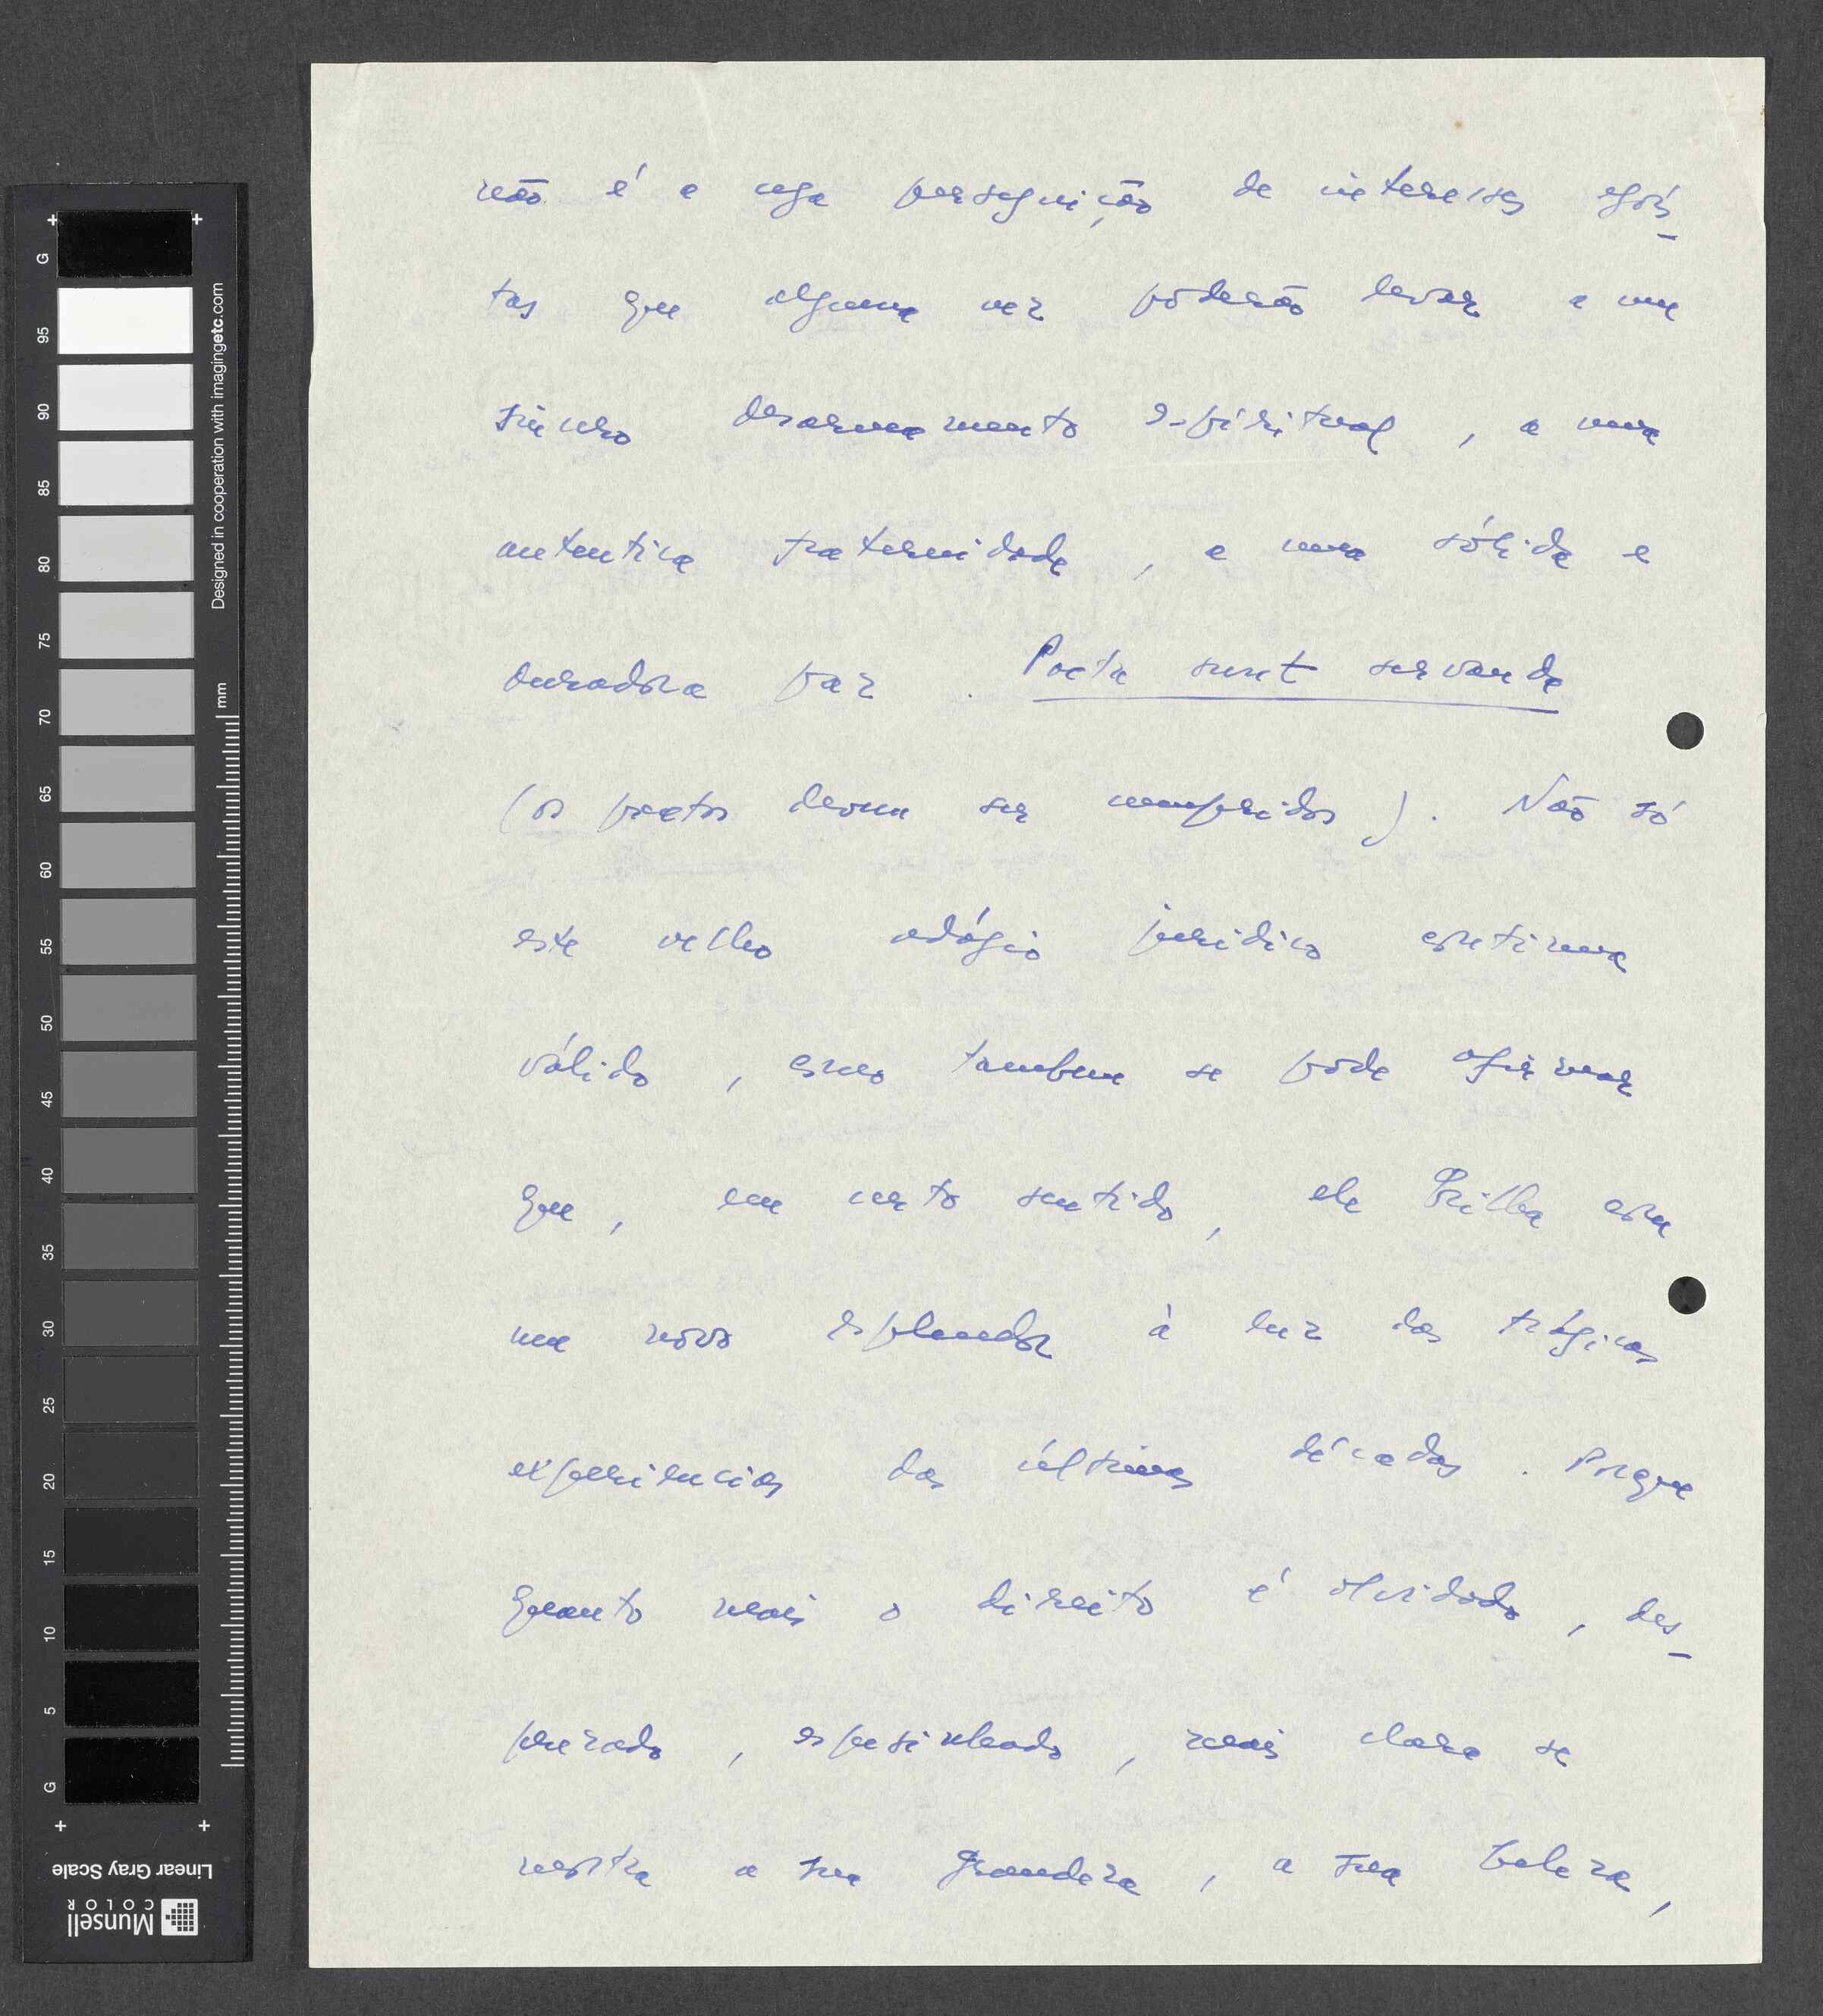 não é a cega perseguição de interesses egoís-
tas que alguma vez poderão levar a um
sincero desarmamento espiritual, a uma
autentica fraternidade, a uma sólida e
duradora paz. Pacta sunt servanda
(os pactos devem ser cumpridos). Não só
este velho adágio juridico continua
válido, como tambem se pode afirmar
que, em certo sentido, ele brilha com
um novo esplendor à luz das trágicas
experiencias das últimas décadas. Porque
quanto mais o direito é olvidado, des-
prezado, espesinhado, mais clara se
mostra a sua grandeza, a sua beleza,
+ +
G
95
90
85
80
75
70
65
60
55
50
45
40
35
30
25
20
15
10
5
G
+ +
Designed in cooperation with imagingetc.com
mm
Linear Gray Scale
Munsell
COLOR